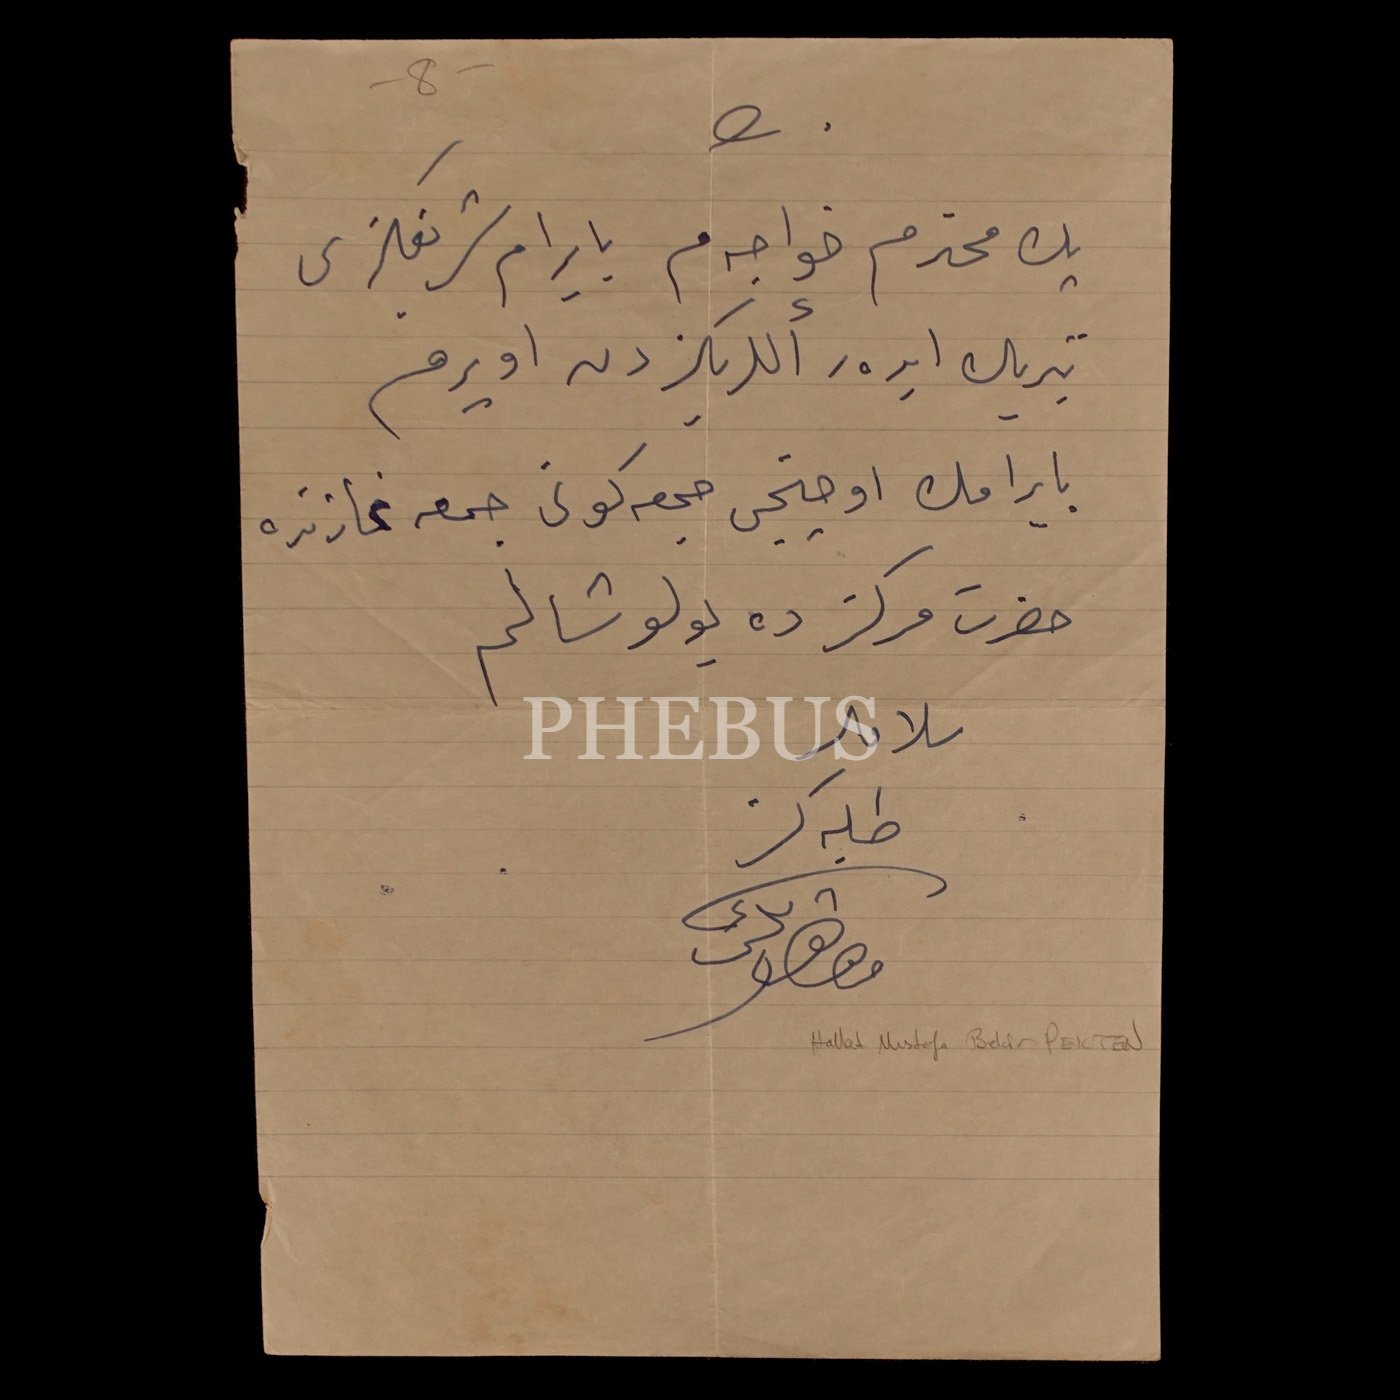 -8-
پك محترم خواجه م بايرام شريفكزى
تبريك ايده ر أللريكزدن اوپرم
بايرامك اوچنجى جمعه كونى جمعه نمازنده
حضرت مركز ده بولوشالم
سلاملر
طلبه كز
Hattat Mustafa Bekir PEKTEN
PHEBUS